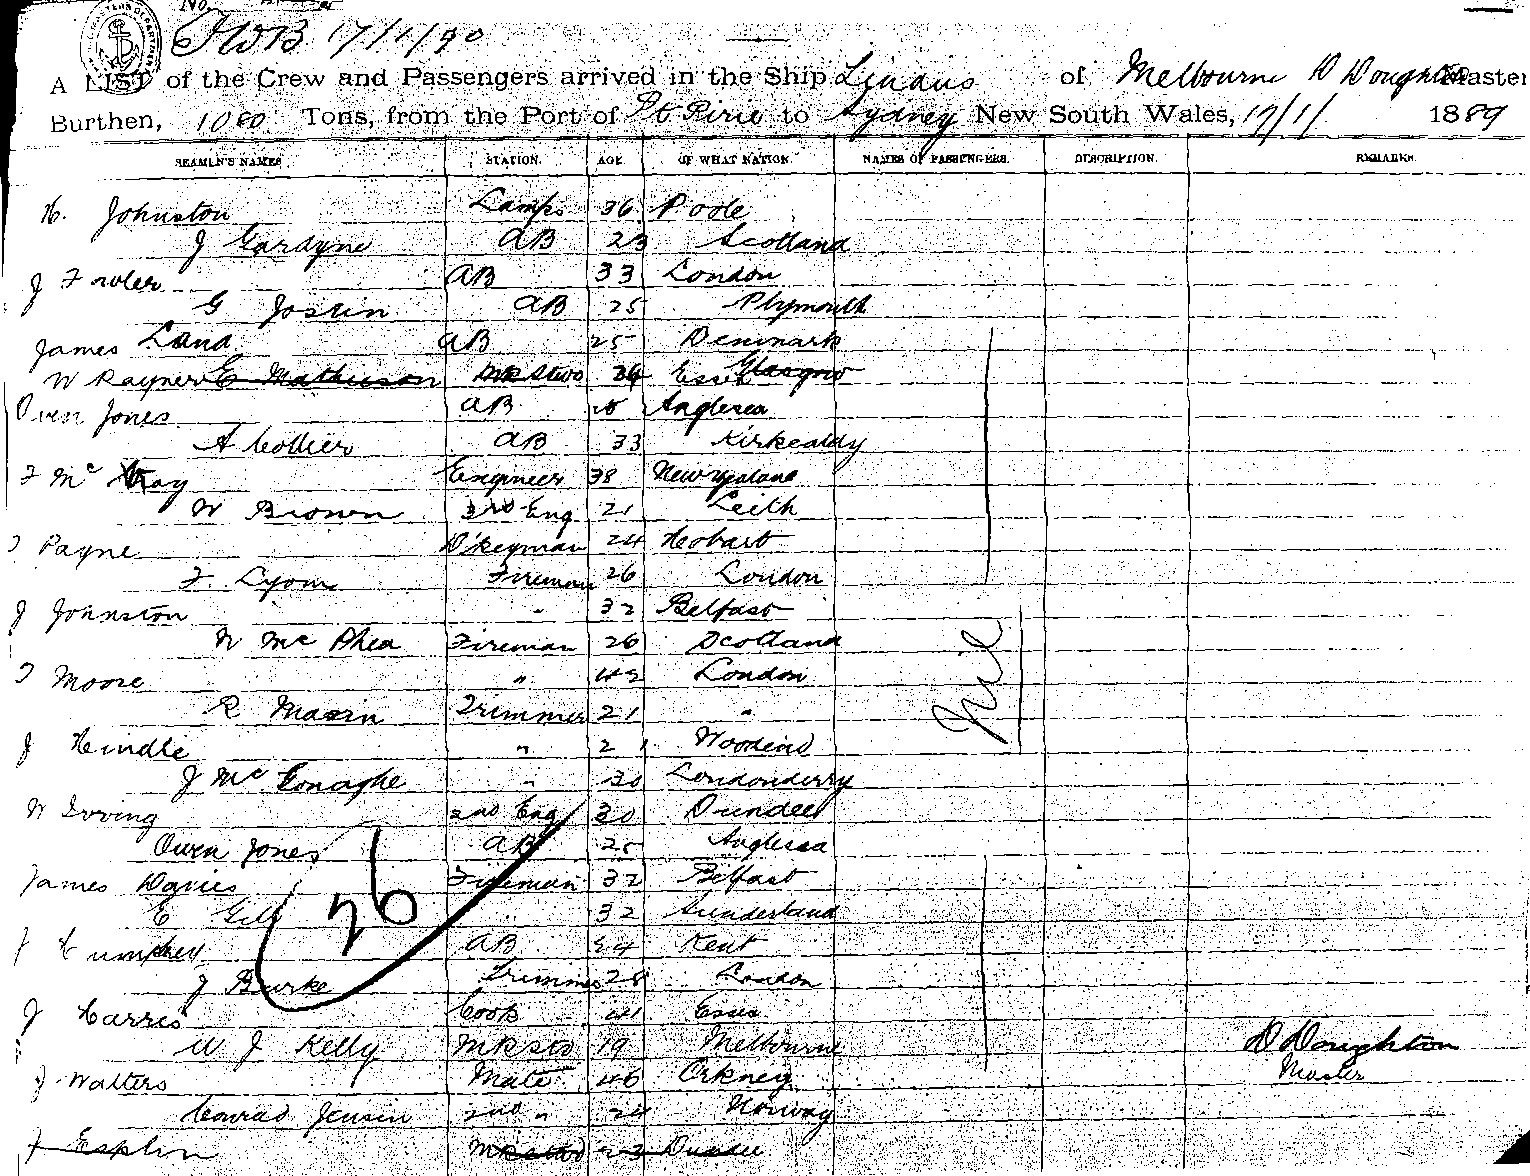 No.
JWB 17/1/90
A LIST of the Crew and Passengers arrived in the Ship Lindus of Melbourne D Doughton Master
Burthen, 1080 Tons, from the Port of Pt Pirie to Sydney New South Wales, 17/1/ 1889
SEAMEN'S NAMES STATION. AGE. OF WHAT NATION. NAMES OF PASSENGERS. DESCRIPTION. REMARKS.
H. Johnston Lamps 36 Poole
J Gardyne AB 23 Scotland
J Fowler AB 33 London
G Joslin AB 25 Plymouth
James Land AB 25 Denmark
W Rayner E Mathieson 36 Essex Glasgow
Owen Jones AB Anglesea
A Collier AB 33 Kirkcaldy
F Mc Kay Engineer 38 New Zealand
W Brown 3rd Eng 21 Leith
T Payne D'keyman 24 Hobart
F Lyom Fireman 26 London
J Johnston " 32 Belfast
N Mc Phea Fireman 26 Scotland
T Moore " 42 London
R Mason Trimmer 21 "
J Hindle " 21 Woodend
J Mc Gonaghe " 30 Londonderry
W Irving 2nd Eng 30 Dundee
Owen Jones AB 25 Anglesea
James Davies Fireman 32 Belfast
E Gill 32 Sunderland
J Humphey AB 24 Kent
J Burke Trimmer 28 London
J Harris Cook 41 Essex
W J Kelly MRStd 19 Melbourne
J Walters Mate 46 Orkney
Conrad Jensen 2nd " 24 Norway
J Esplin MRStwd 23 Dundee
Nil
26
D Doughton
Master